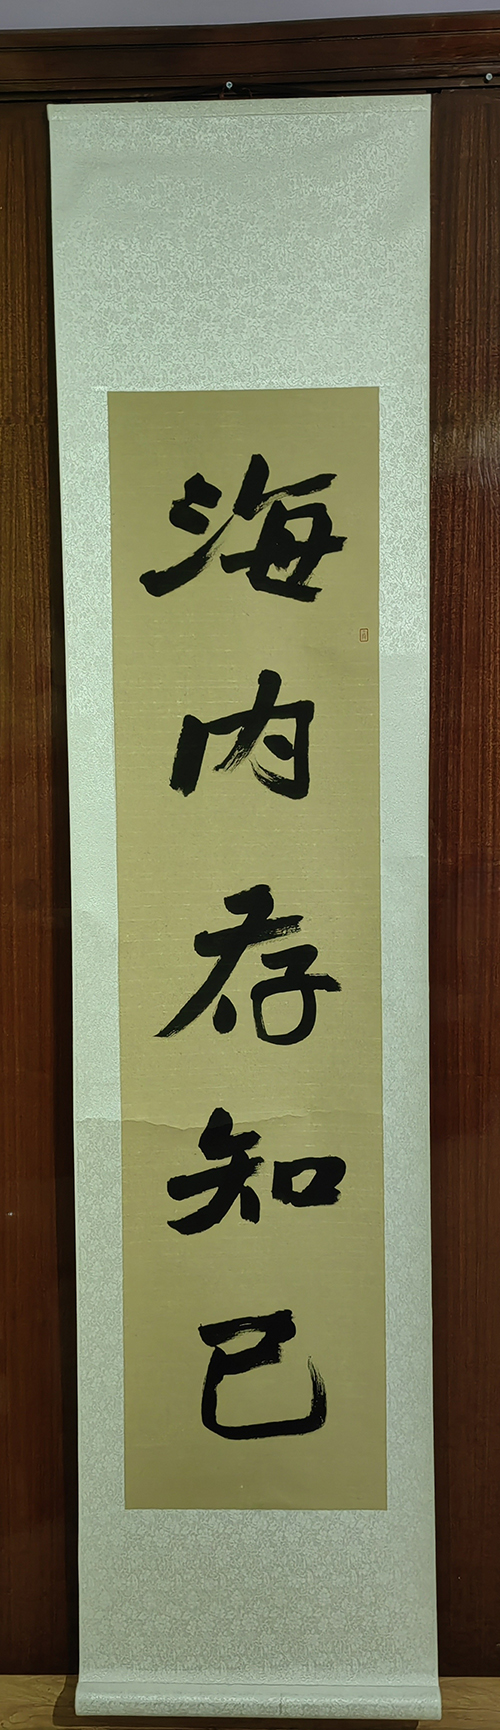 海内存知己